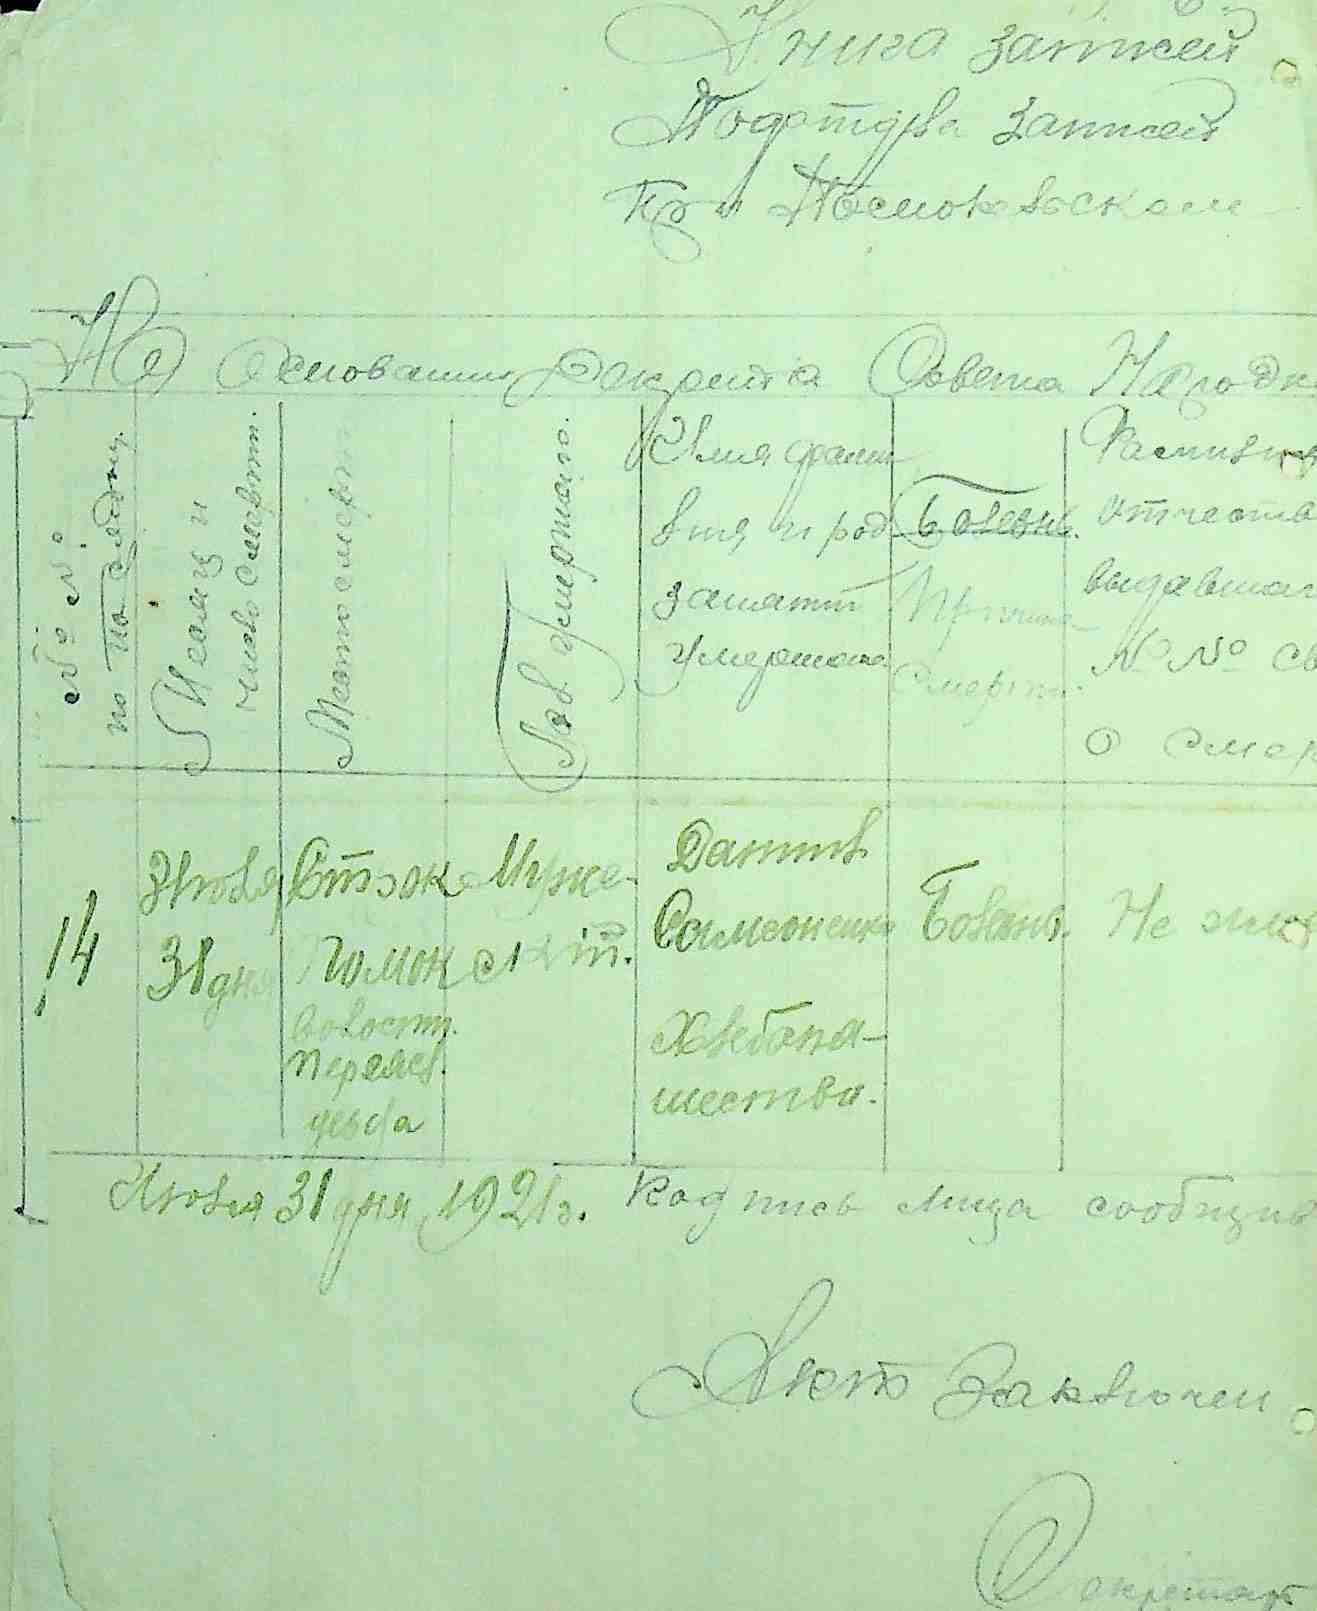 Книга записей
Подотдела записей
При Помокельском
На Основании Декрета Совета Народн
№ №
по порядку.
Месяц и
число смерти.
Место смерти
Пол умершаго.
Имя фами
лия и род
занятий
умершаго
Болезнь.
Причина
смерти.
отчеств
выдавшаг
№ № св
о смер
14
Июля
31 дня
Помок
волости.
Переясл.
уезда
Муже-
ск
Данило
Симоненко
Хлебопа-
шество.
Болезнь.
Не
Июля 31 дня 1921 г. Подпись лица сообщив
Акт Заключен
Секретарь